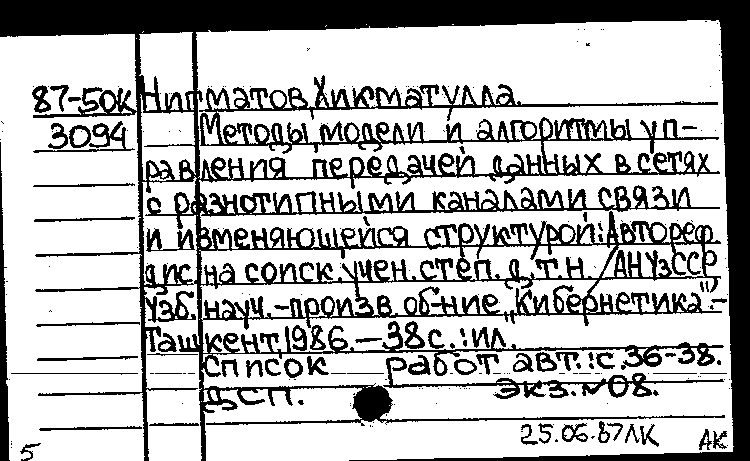 87-50К Нигматов, Хикматулла.
3094 Методы, модели и алгоритмы уп-
равления передачей данных в сетях
с разнотипными каналами связи
и изменяющейся структурой: Автореф
дис. на соиск. учен. степ. д.т.н. / АН УзССР
Узб. науч.-произв. об-ние „Кибернетика".-
Ташкент, 1986.-38 с.: ил.
Список работ авт.: с. 36-38.
ДСП. Экз. №08.
25.06.87ЛК АК
5